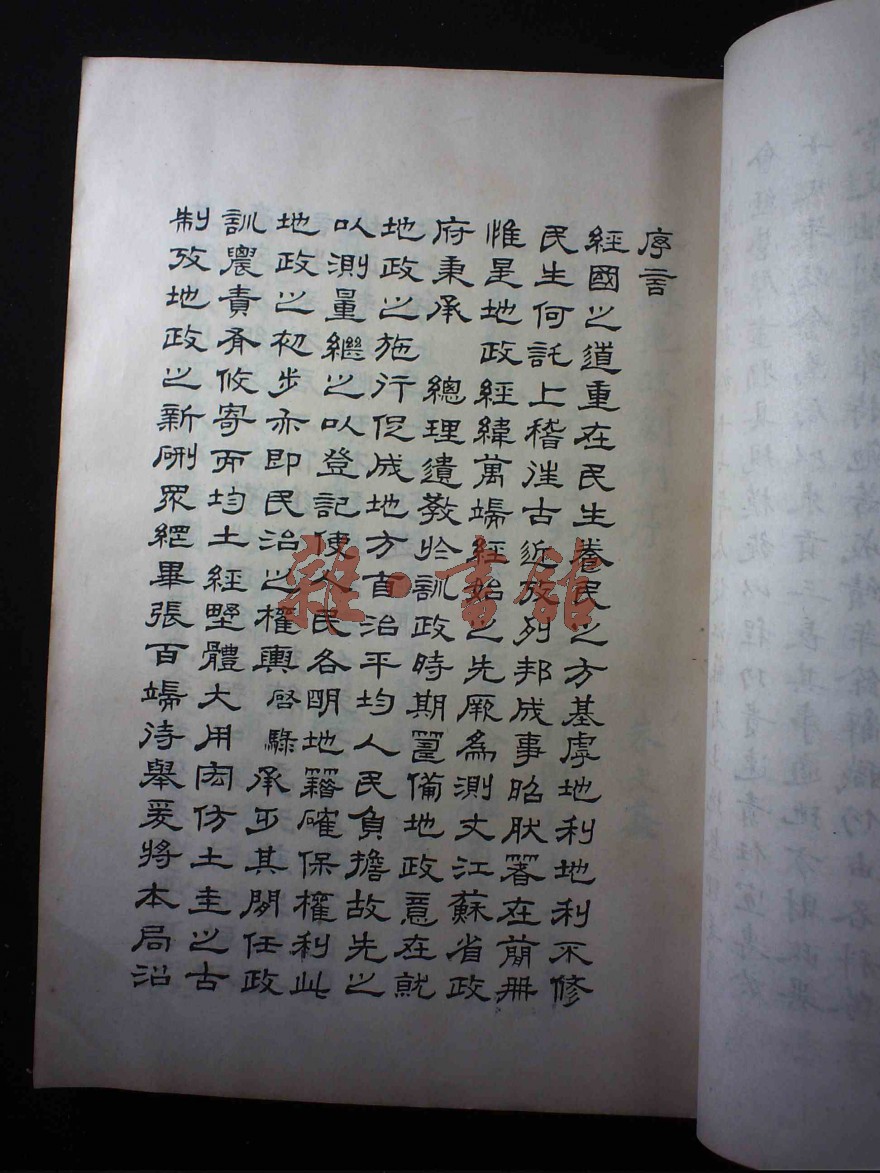 序言
經國之道重在民生養民之方基虖地利地利不修
民生何託上稽往古近攷列邦成事昭肰箸在蕳冊
惟是地政經緯萬端經始之先厥為測丈江蘇省政
府秉承 總理遺教於訓政時期籌備地政意在就
地政之施行促成地方自治平均人民負擔故先之
以測量繼之以登記使人民各明地籍確保權利此
地政之初步亦即民治之權輿啓騄承乏其間任政
訓農責有攸寄而均土經野體大用宏仿土圭之古
制攷地政之新硎眾綱畢張百端待舉爰將本局沿
雜·書館